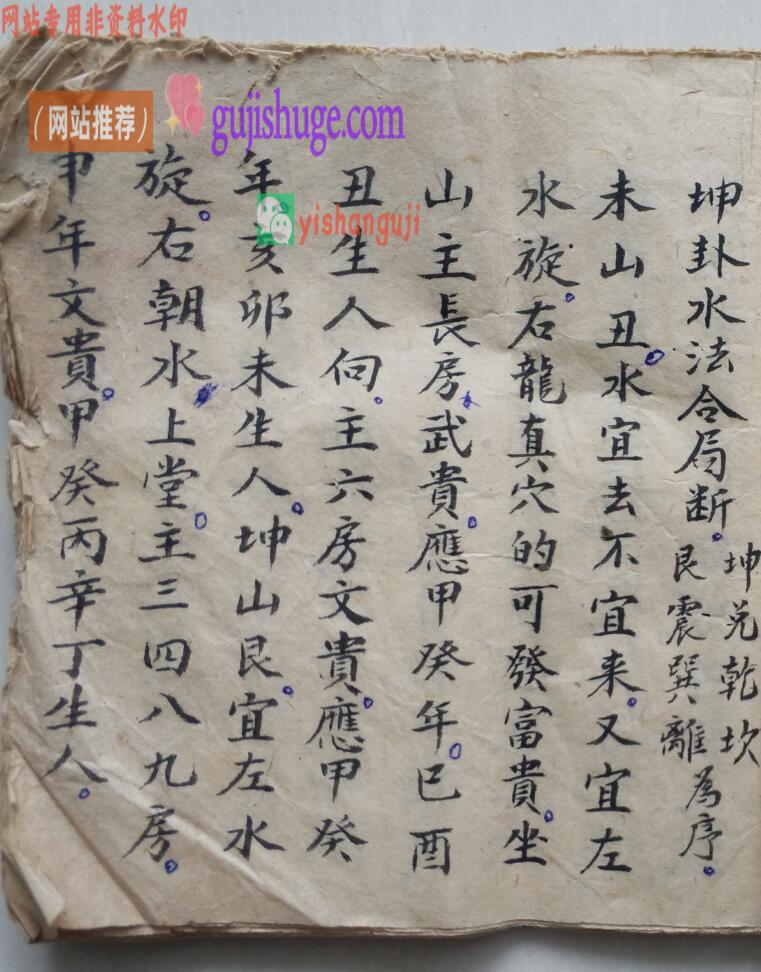 网站专用非资料水印
（网站推荐）
gujishuge.com
yishanguji
坤卦水法合局断。坤兑乾坎
艮震巽離為序。
未山丑。水宜去不宜来。又宜左
水旋。右龍真穴的可發富貴。坐
山主長房武貴。應甲癸年。巳酉
丑生人向。主六房文貴。應甲癸
年亥卯未生人。坤山艮。宜左水
旋。右朝水上堂。主三四八九房。
申年文貴。甲癸丙辛丁生人。